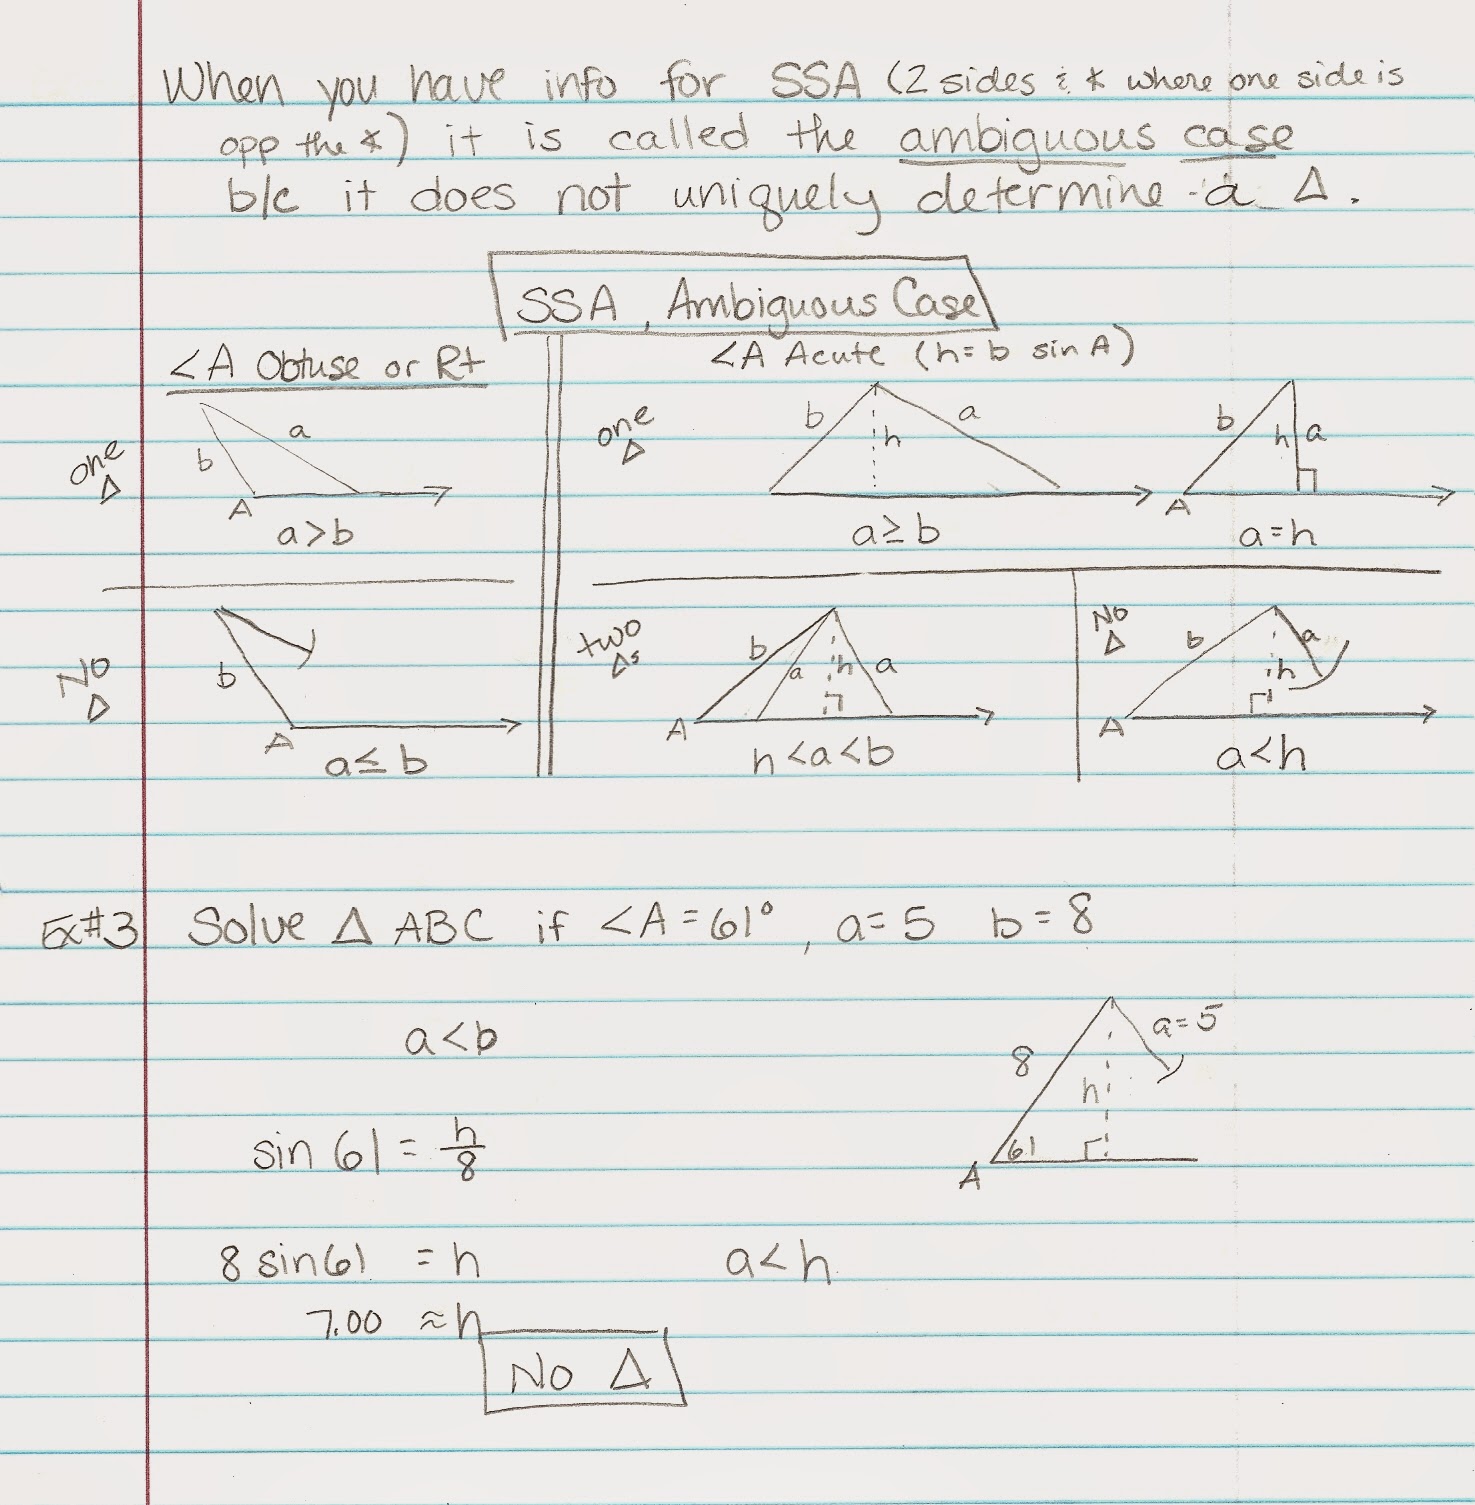 When you have info for SSA (2 sides & ∡ where one side is
opp the ∡) it is called the ambiguous case
b/c it does not uniquely determine a Δ.
SSA, Ambiguous Case
∠A Obtuse or Rt
∠A Acute (h= b sin A)
one
Δ
b
a
A
a>b
one
Δ
b
h
a
a≥b
b
h
a
A
a=h
No
Δ
b
A
a≤b
two
Δs
b
a
h
a
A
h<a<b
No
Δ
b
h
a
A
a<h
Ex#3 Solve Δ ABC if ∠A=61°, a=5 b=8
a<b
8
a=5
h
61
A
sin 61 = h/8
8 sin 61 = h
a<h
7.00 ≈h
No Δ